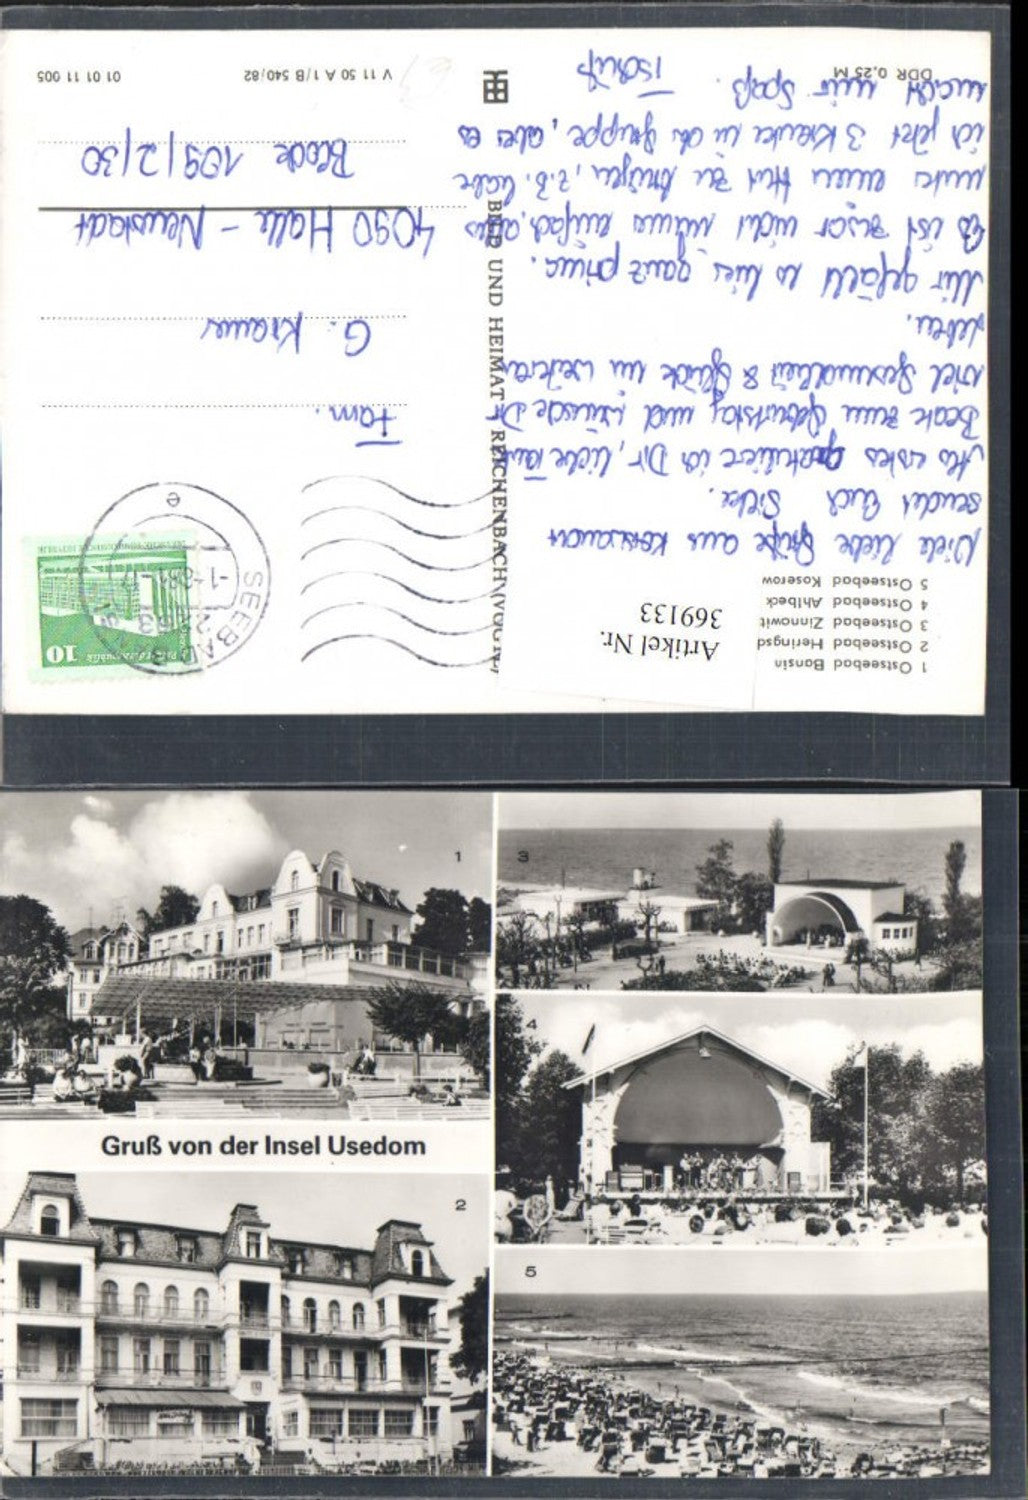 1 Ostseebad Bansin
2 Ostseebad Heringsd
3 Ostseebad Zinnowitz
4 Ostseebad Ahlbeck
5 Ostseebad Koserow
Artikel Nr.
369133
Viele liebe Grüße aus Koserow
sendet Euch Silke.
Als erstes gratuliere ich Dir, liebe Tante
Beate zum Geburtstag und wünsche Dir
viel Gesundheit & Glück im weiteren
Leben.
Mir gefällt es hier ganz prima.
Es ist zwar nicht immer einfach, alles
unter einen Hut zu kriegen, z.B. habe
ich jetzt 3 Kranke in der Gruppe, aber es
macht mir Spaß. Tschüß
DDR 0,25 M
BILD UND HEIMAT REICHENBACH (VOGTL.)
10
SEEBAD
e
Fam.
G. Kramer
4090 Halle - Neustadt
Block 109/2/30
V 11 50 A 1/B 540/82
01 01 11 005
1
3
4
Gruß von der Insel Usedom
2
5